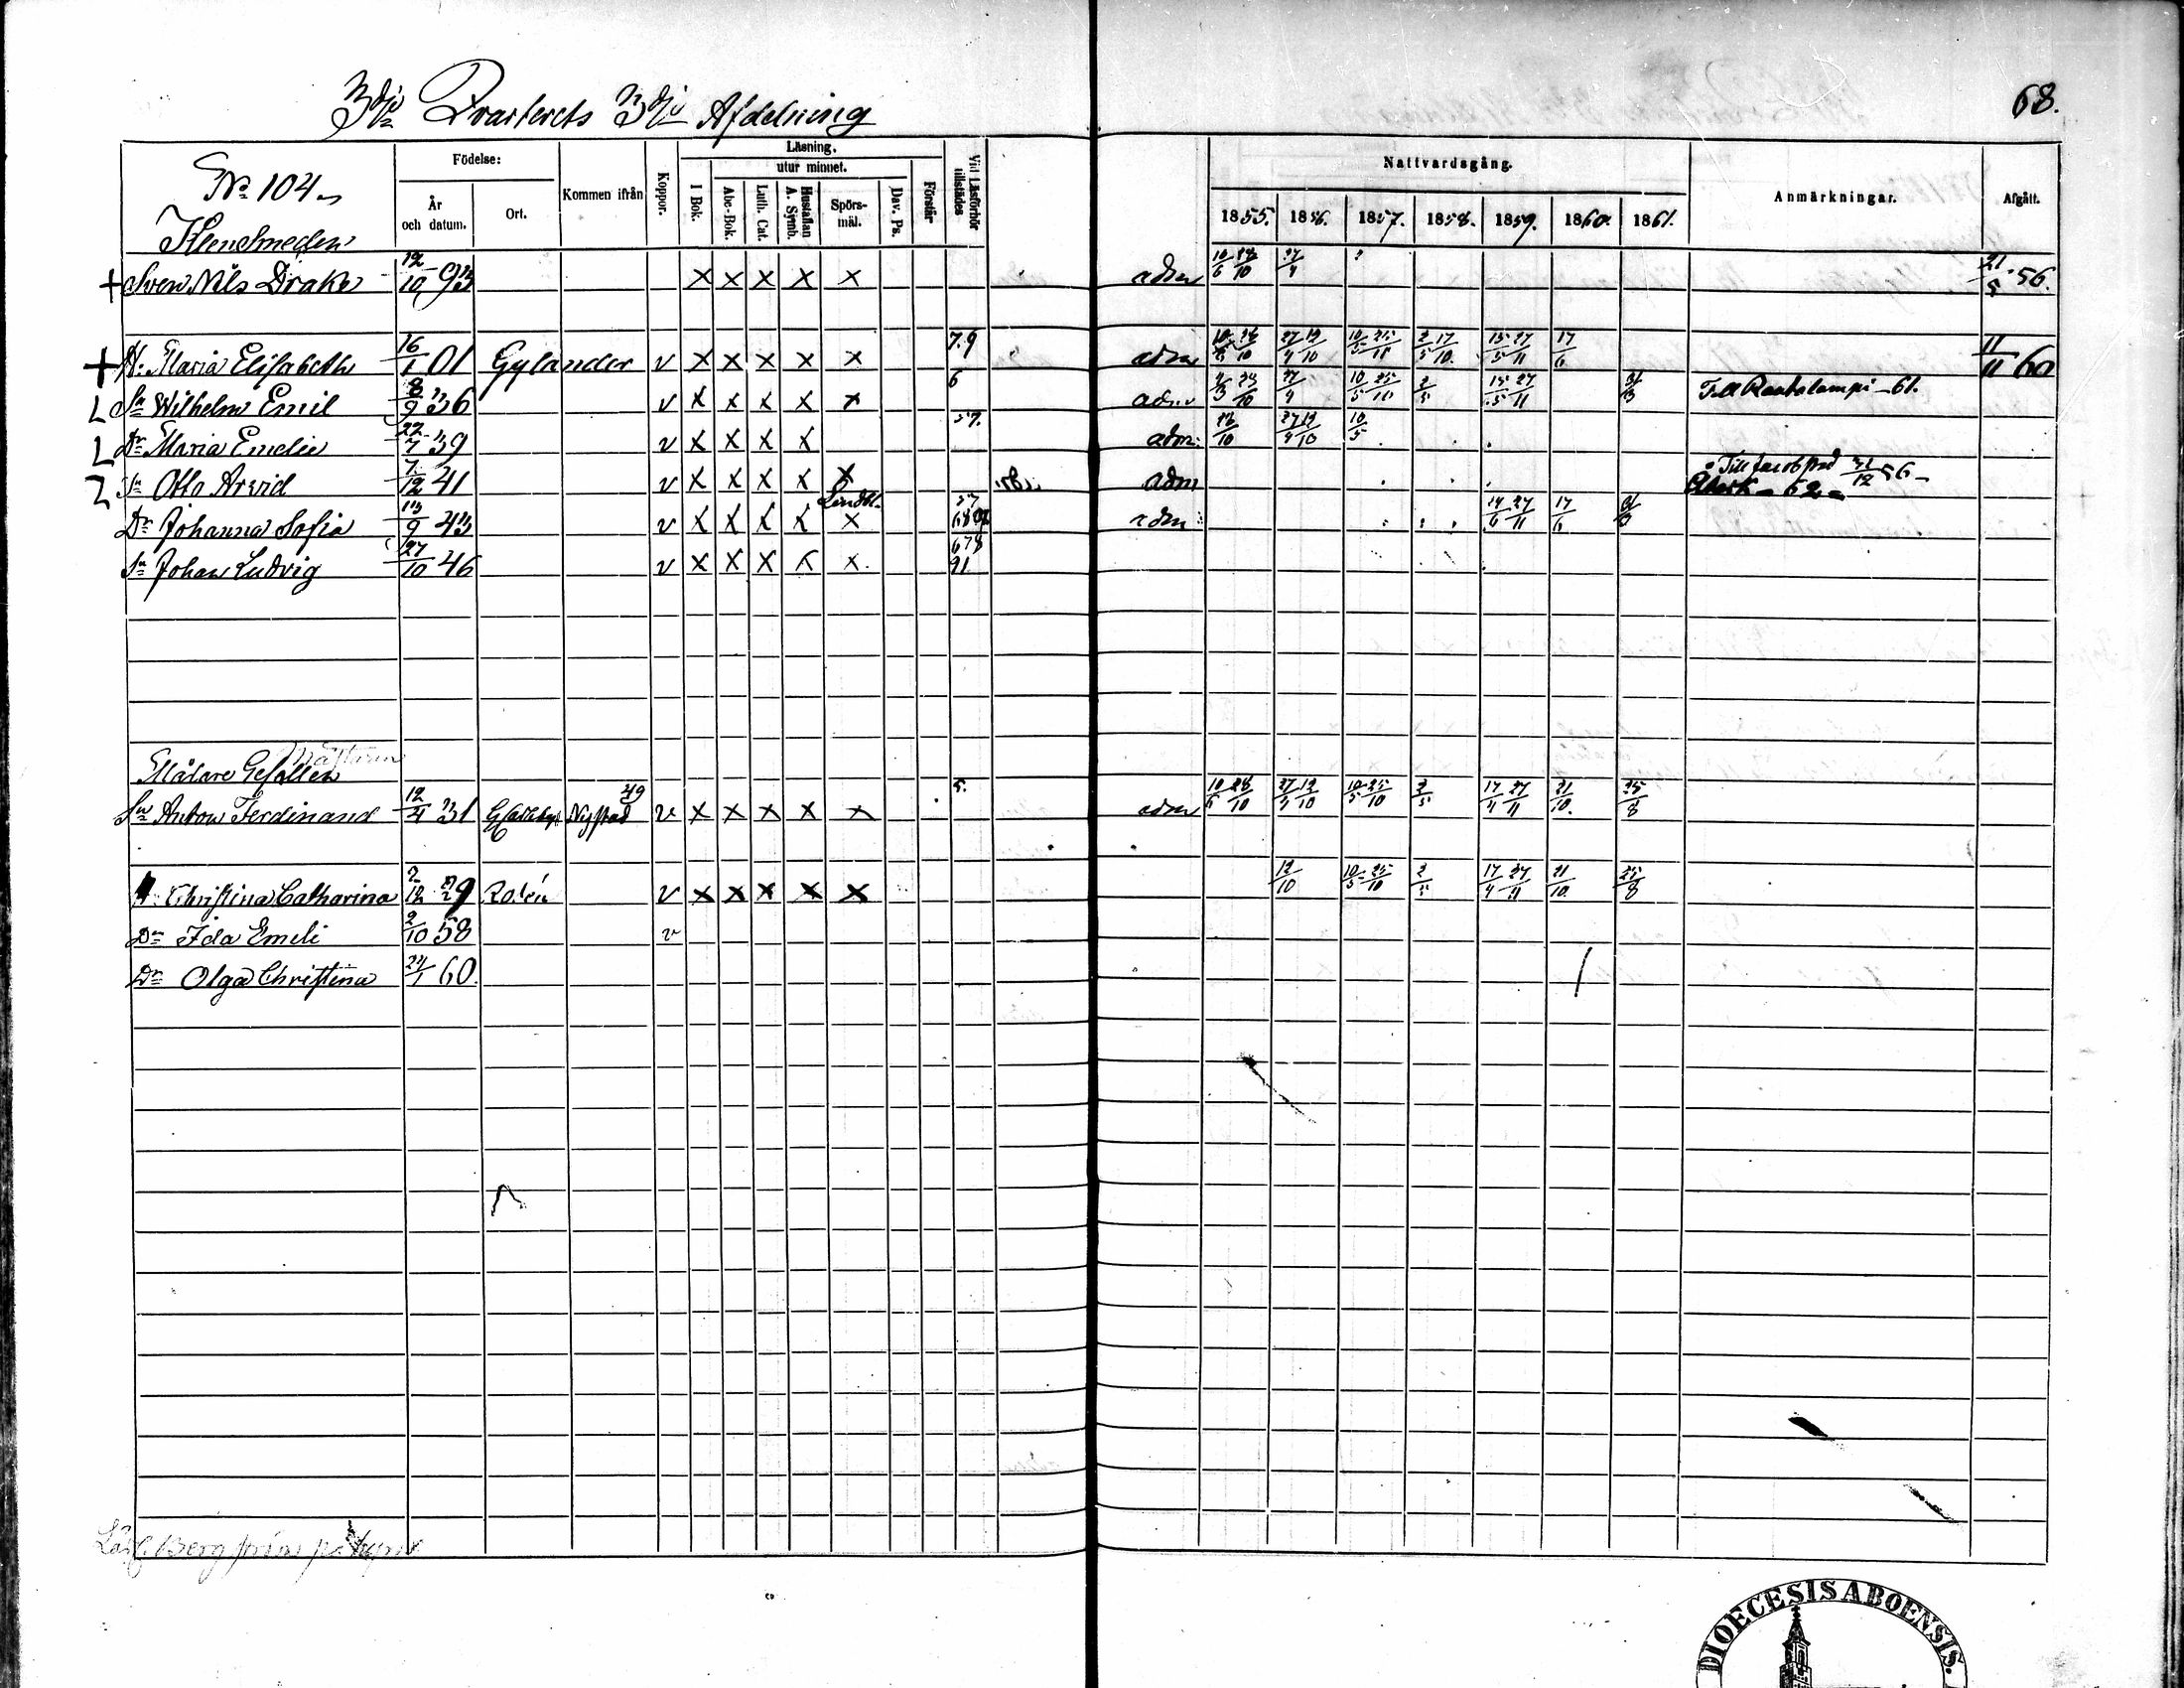 3dje Qvarterets 3dje Afdelning
68.
No 104
Klensmeden
Födelse:
År och datum.
Ort.
Kommen ifrån
Koppor.
Läsning.
I Bok.
utur minnet.
Abc-Bok.
Luth. Cat.
Hustaflan A. Symb.
Spörs-mål.
Dav. Ps.
Förstår
Vid Läsförhör tillstädes
Nattvardsgång.
1855. 1856. 1857. 1858. 1859. 1860. 1861.
Anmärkningar.
Afgått.
+ Sven Nils Drake 12/10 93 X X X X X adm 10/6 28/10 27/4 21/5 56.
+ H. Maria Elisabeth 16/1 01 Gylander v X X X X X 7.9 adm 27/4 12/10 10/5 25/10 2/5 17/10 15/5 27/11 17/6 11/11 60
L Sn Wilhelm Emil 8/9 36 v X X X X X 6 adm 27/4 10/5 25/10 2/5 15/5 27/11 Till Rautalampi -61.
L Dr Maria Emelie 22/7 39 v X X X X 57. adm: 28/10 27/4 12/10 10/5
Sn Otto Arvid 7/12 41 v X X X X X adm Till Jacobstad 31/12 56 -
Återk - 62 -
Dr Johanna Sofia 13/9 43 v X X X X Lindbl. X 57 adm 14/6 27/11 17/6
Sn Johan Ludvig 27/10 46 v X X X X X 678 91
Målare Gesällen
Sn Anton Ferdinand 12/4 31 Nystad 49 v X X X X X 5. adm 10/6 28/10 27/4 12/10 10/5 25/10 2/5 17/4 27/11 21/10. 25/8
Christina Catharina 2/12 29 Rolén v X X X X X 12/10 10/5 25/10 2/5 17/4 27/11 21/10 25/8
Dr Ida Emeli 2/10 58 v
Dr Olga Christina 24/1 60.
DIOECESIS ABOENSIS.